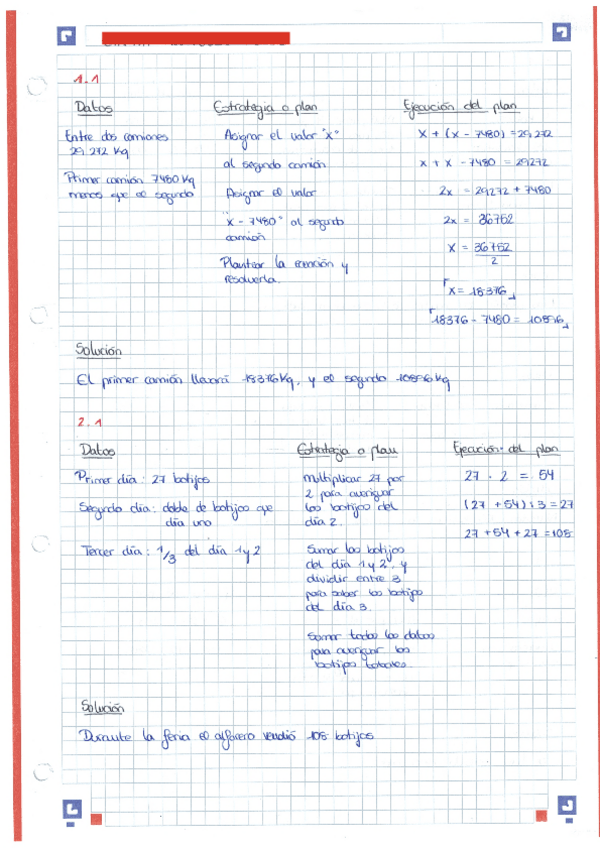 1.1
Datos
Entre dos camiones
29.272 Kg
Primer camión 7480 Kg
menos que el segundo
Estrategia o plan
Asignar el valor "x"
al segundo camión
Asignar el valor
"x - 7480" al segundo
camión
Plantear la ecuación y
resolverla.
Ejecución del plan
x + (x - 7480) = 29,272
x + x - 7480 = 29272
2x = 29272 + 7480
2x = 36752
x = 36752
2
x = 18376
18376 - 7480 = 10896
Solución
El primer camión llevará 18376 Kg, y el segundo 10896 Kg
2.1
Datos
Primer día: 27 botijos
Segundo día: doble de botijos que
día uno
Tercer día: 1/3 del día 1 y 2
Estrategia o plan
Multiplicar 27 por
2 para averiguar
los botijos del
día 2.
Sumar los botijos
del día 1 y 2, y
dividir entre 3
para saber los botijos
del día 3.
Sumar todos los datos
para averiguar los
botijos totales.
Ejecución del plan
27 · 2 = 54
(27 + 54) : 3 = 27
27 + 54 + 27 = 108
Solución
Durante la feria el alfarero vendió 108 botijos